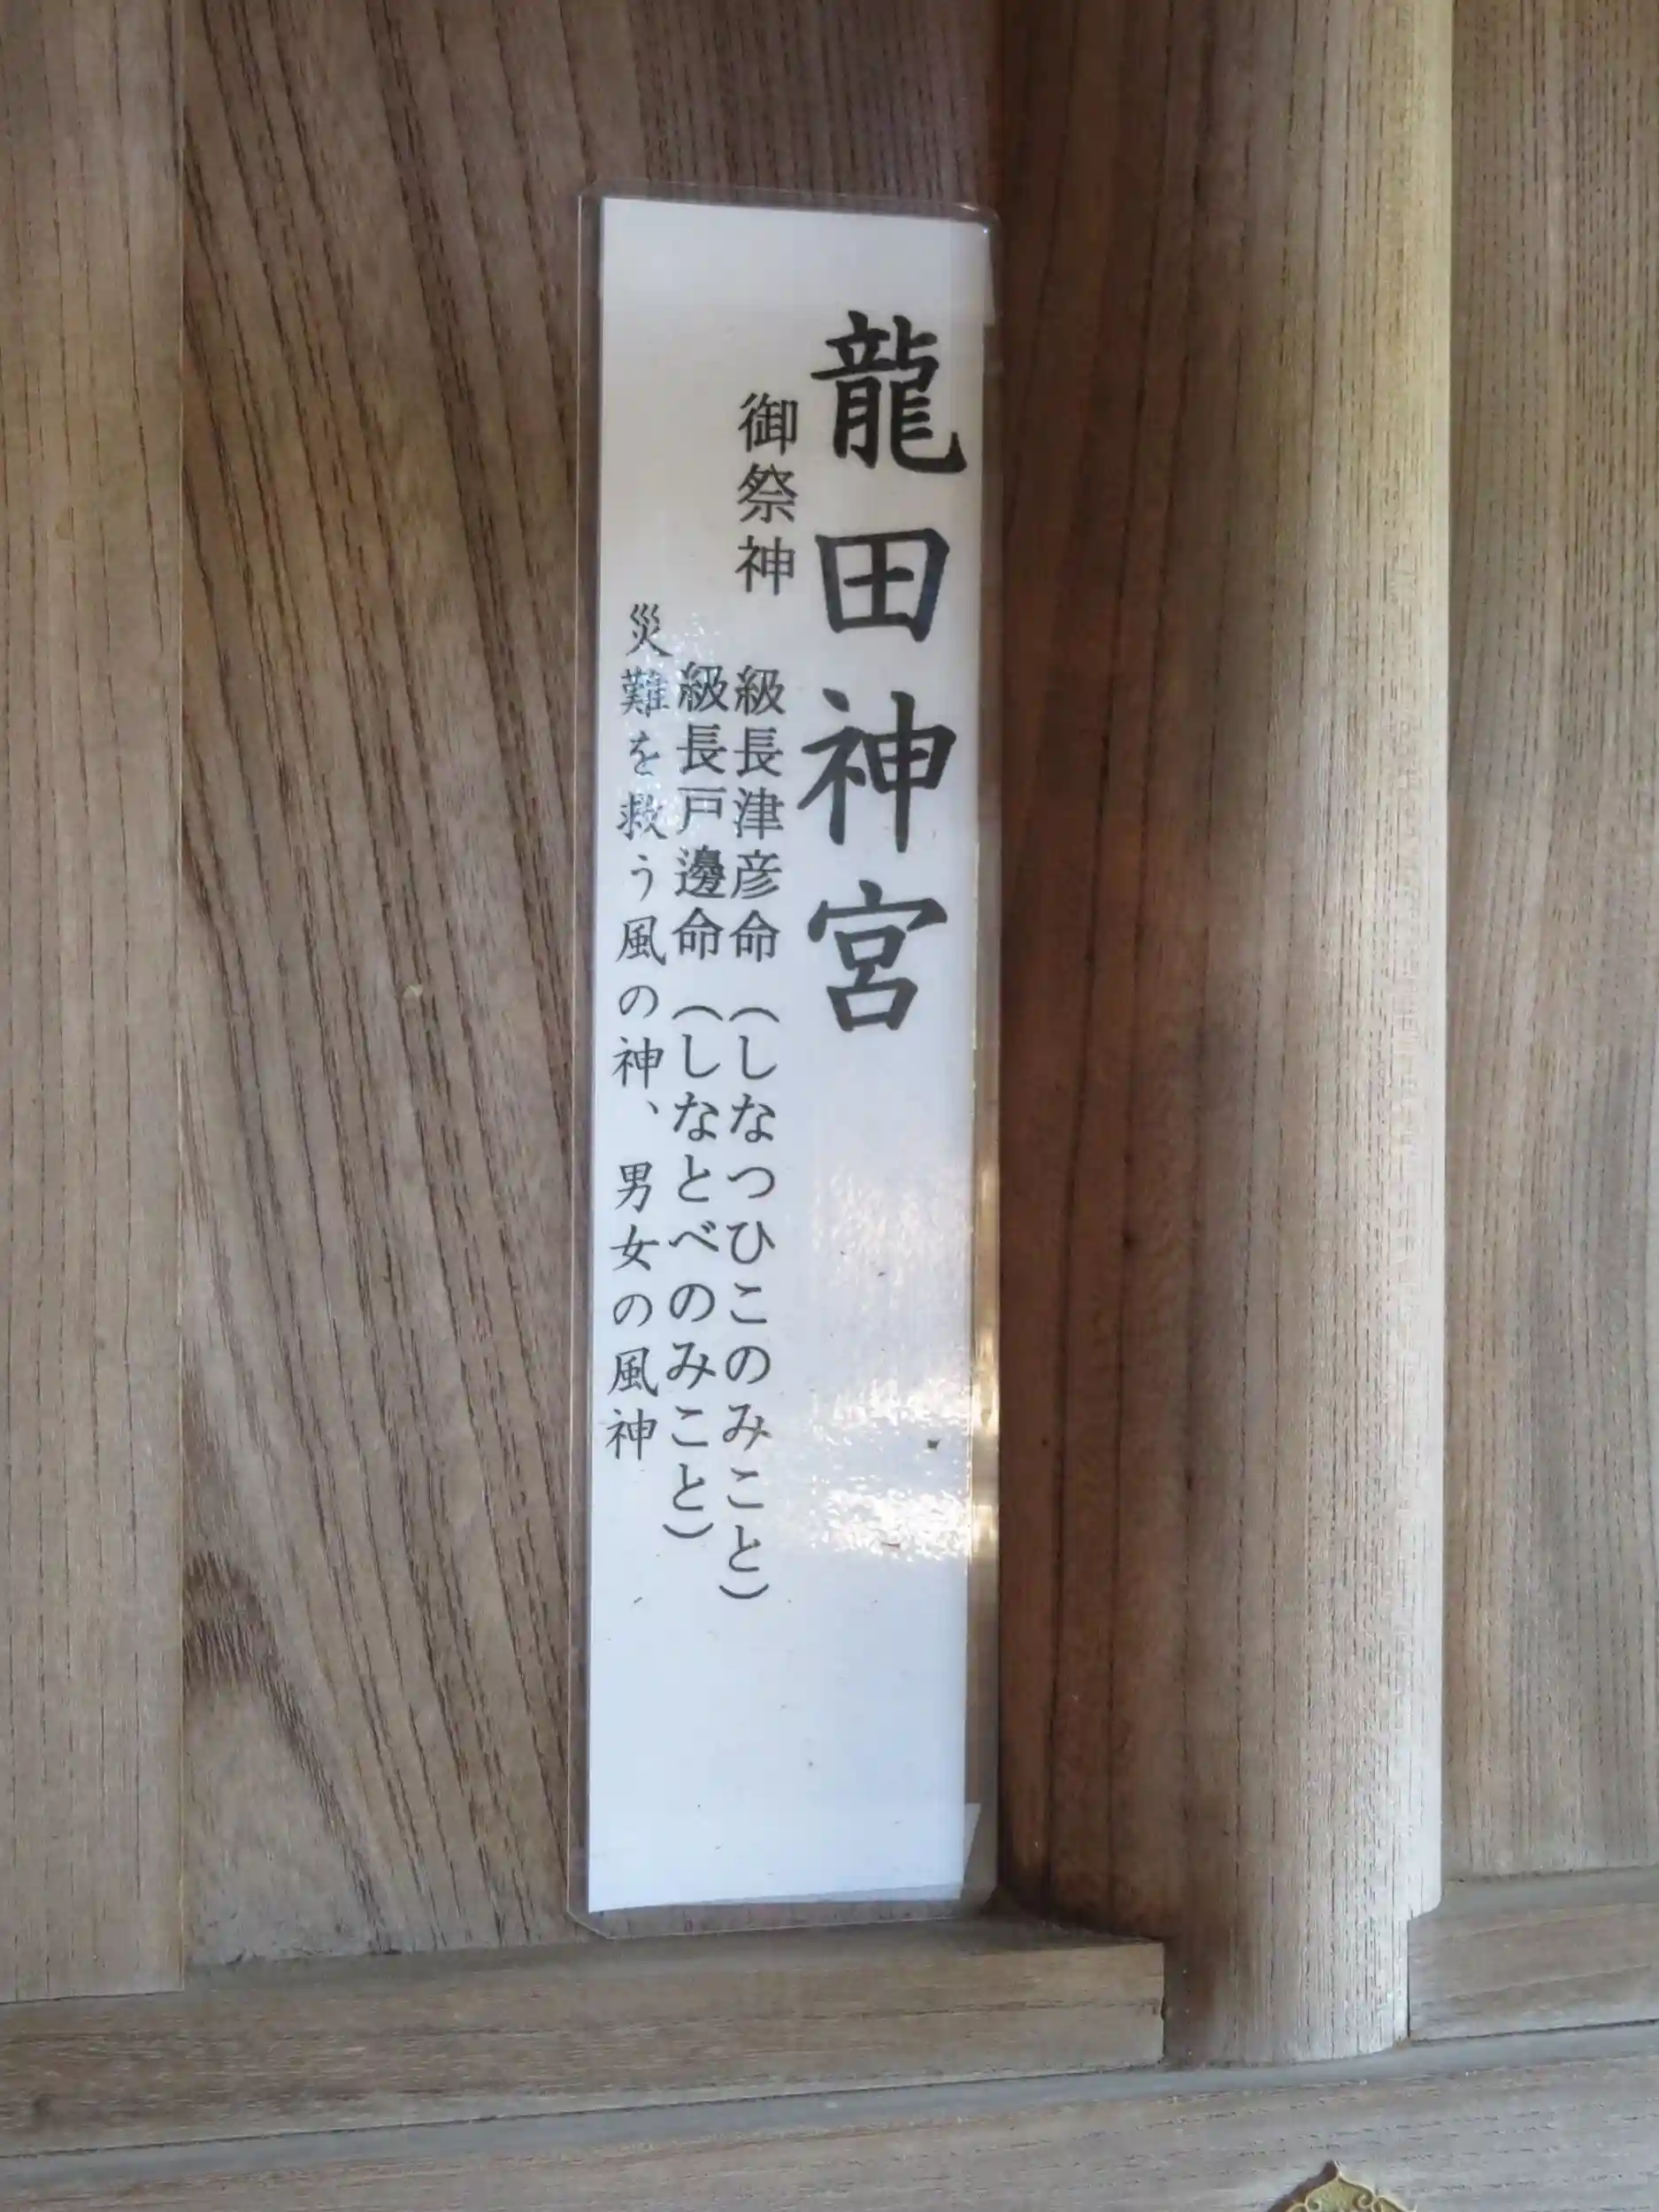 龍田神宮
御祭神
級長津彦命（しなつひこのみこと）
級長戸邊命（しなとべのみこと）
災難を救う風の神、男女の風神